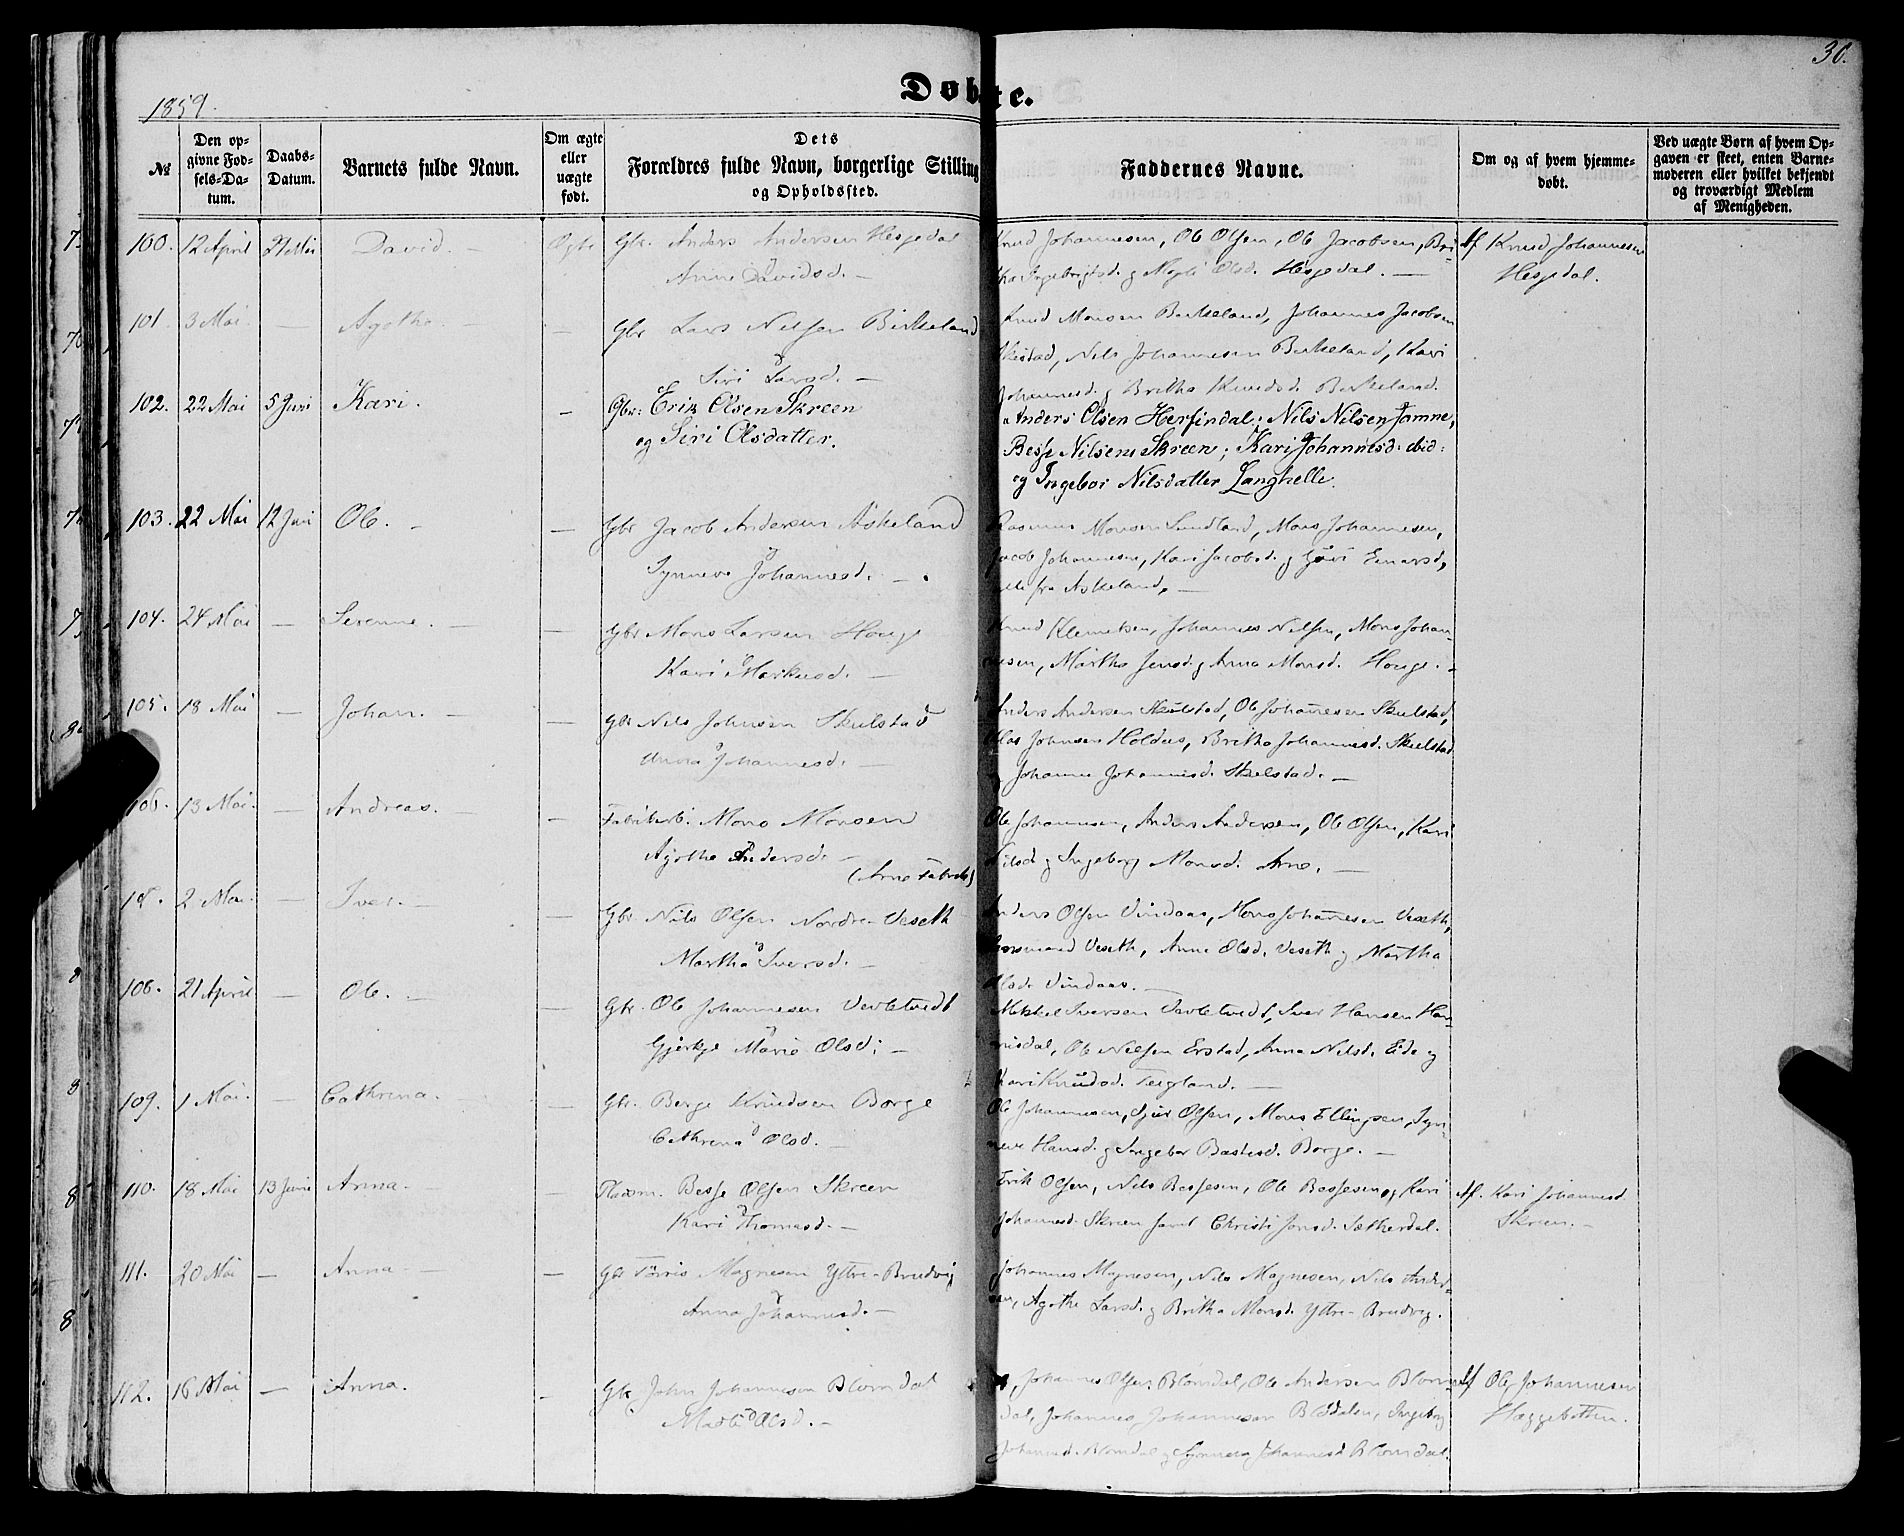 30.
Døbte.
1859.
No
Den opgivne Fødsels-Datum.
Daabs-Datum.
Barnets fulde Navn.
Om ægte eller uægte født.
Dets Forældres fulde Navn, borgerlige Stilling og Opholdssted.
Faddernes Navne.
Om og af hvem hjemmedøbt.
Ved uægte Børn af hvem Opgaven er skeet, enten Barnemoderen eller hvilket bekjendt og troværdigt Medlem af Menigheden.
100. 12 April David. Ægte Gbr. Anders Andersen Hesjedal Knud Johannesen, Ole Olsen, Ole Jacobsen, Bri- Af Knud Johannesen
Anne Davidsd. — tha Ingebrigtsd. og Olsd. Hesjedal. — Hesjedal.
101. 3 Mai — Agatha. — Gbr Lars Nilsen Birkeland Knud Monsen Birkeland, Johannes Jacobsen
Siri Larsd. — Nils Johannesen Birkeland, Kari
Johannesd. og Britha Knudsd. Birkeland.
102. 22 Mai 5 Juni Kari. — Gbr: Erik Olsen Skreen Anders Olsen Herfindal; Nils Nilsen Jamne,
og Siri Olsdatter. Besse Nilsen Skreen; Kari Johannesd: ibid:
og Ingebor Nilsdatter Langhelle.
103. 22 Mai 12 Juni Ole. — Gbr Jacob Andersen Askeland Rasmus Monsen Lundland, Mons Johannesen,
Synneve Johannesd. — Jacob Johannesen, Kari Jacobsd. og Einarsd,
alle fra Askeland. —
104. 24 Mai — Serenne. — Gbr Mons Larsen Houge Knud Klemetsen, Johannes Nilsen, Mons Johan-
Kari Markusd. — nesen, Martha Jensd. og Anna Monsd. Houge. —
105. 18 Mai — Johan. — Gbr Nils Johnsen Skulstad Anders Andersen Skulstad, Ole Johannesen Skulstad,
Anna Johannesd. — Johnsen Holdus, Britha Johannesd. Skulstad
og Johanne Johannesd. Skulstad. —
106. 13 Mai. — Andreas. — Fabrikarb. Mons Monsen Ole Johannesen, Anders Andersen, Ole Olsen, Kari
Agotha Andersd. — Nilsd og Ingeborg Monsd. Arne. —
(Arne Fabrik)
2 Mai. — Iver. — Gbr Nils Olsen Nordre-Veseth Anders Olsen Vindaas, Mons Johannesen Veseth,
Martha Iversd. — Veseth, Anne Olsd. Veseth og Martha
Olsd. Vindaas. —
108. 21 April — Ole. — Gbr. Ole Johannesen Vevletvedt Mikkel Iversen Vevletvedt, Iver Hansen Han-
Gjertje Marie Olsd; — isdal, Ole Nilsen Erstad, Anna Nilsd. Eide og
Kari Knudsd. Teigland. —
109. 1 Mai. — Cathrina. — Gbr. Berge Knudsen Borge Ole Johannesen, Sjur Olsen, Mons Ellingsen, Syn-
Cathrina Olsd. — neve Hansd. og Ingebor Bastesd. Borge. —
110. 18 Mai 13 Juni Anna. — Besse Olsen Skreen Erik Olsen, Nils Bessesen, Ole Bessesen og Kari Af. Kari Johannesd.
Kari Thomasd. — Johannesd. Skreen samt Christi Jonsd. Sætherdal. Skreen. —
111. 20 Mai — Anna. — Gbr Torris Magnesen Yttre-Brudvig Johannes Magnesen, Nils Magnesen, Nils Anders-
Anna Johannesd. — sen, Agothe Larsd. og Britha Monsd. Yttre-Brudvig.
112. 16 Mai — Anna. — Gbr. John Johannesen Blomdal Johannes Olsen Blomdal, Ole Andersen Blom- Af Ole Johannesen
Madli Olsd. — dal, Johannes Johannesen Ingeborg Hæggebotten.
Johannesd. Blomdal og Synneva Johannesd Blomdal.